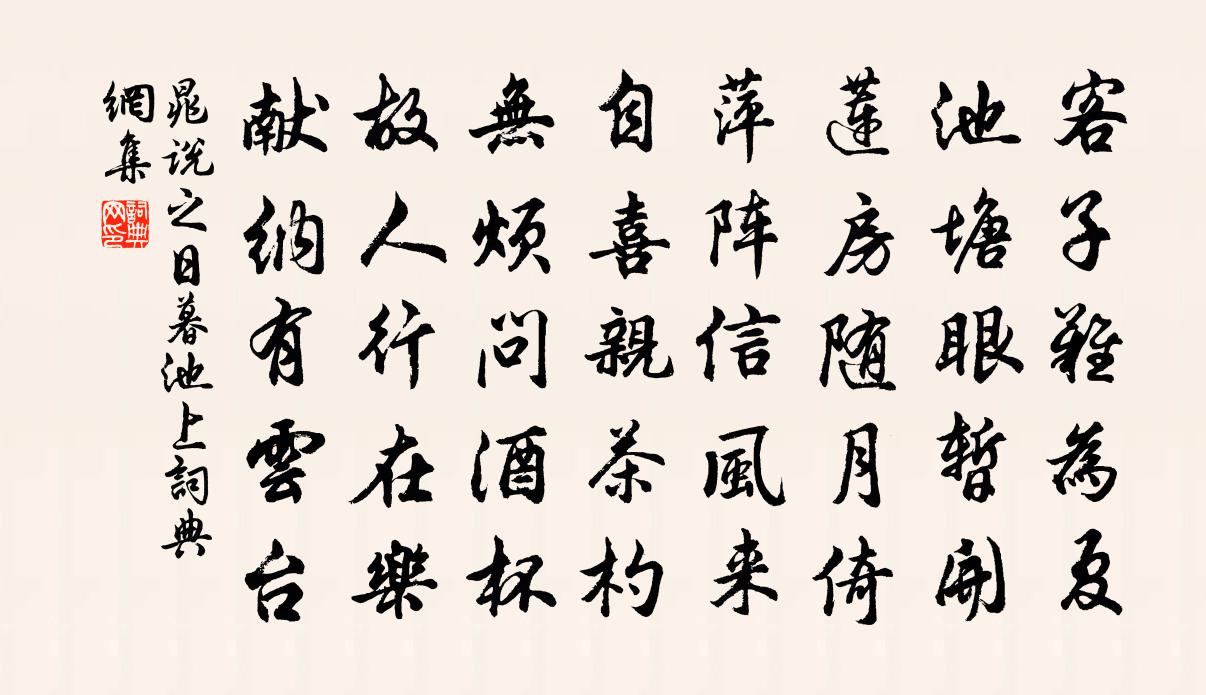 客子難為夏
池塘眼暫開
蓮房随月倚
萍阵信風来
自喜親茶杓
無煩问酒杯
故人行在樂
献纳有雲台
晁说之日暮池上詞典
網集
詞典网印